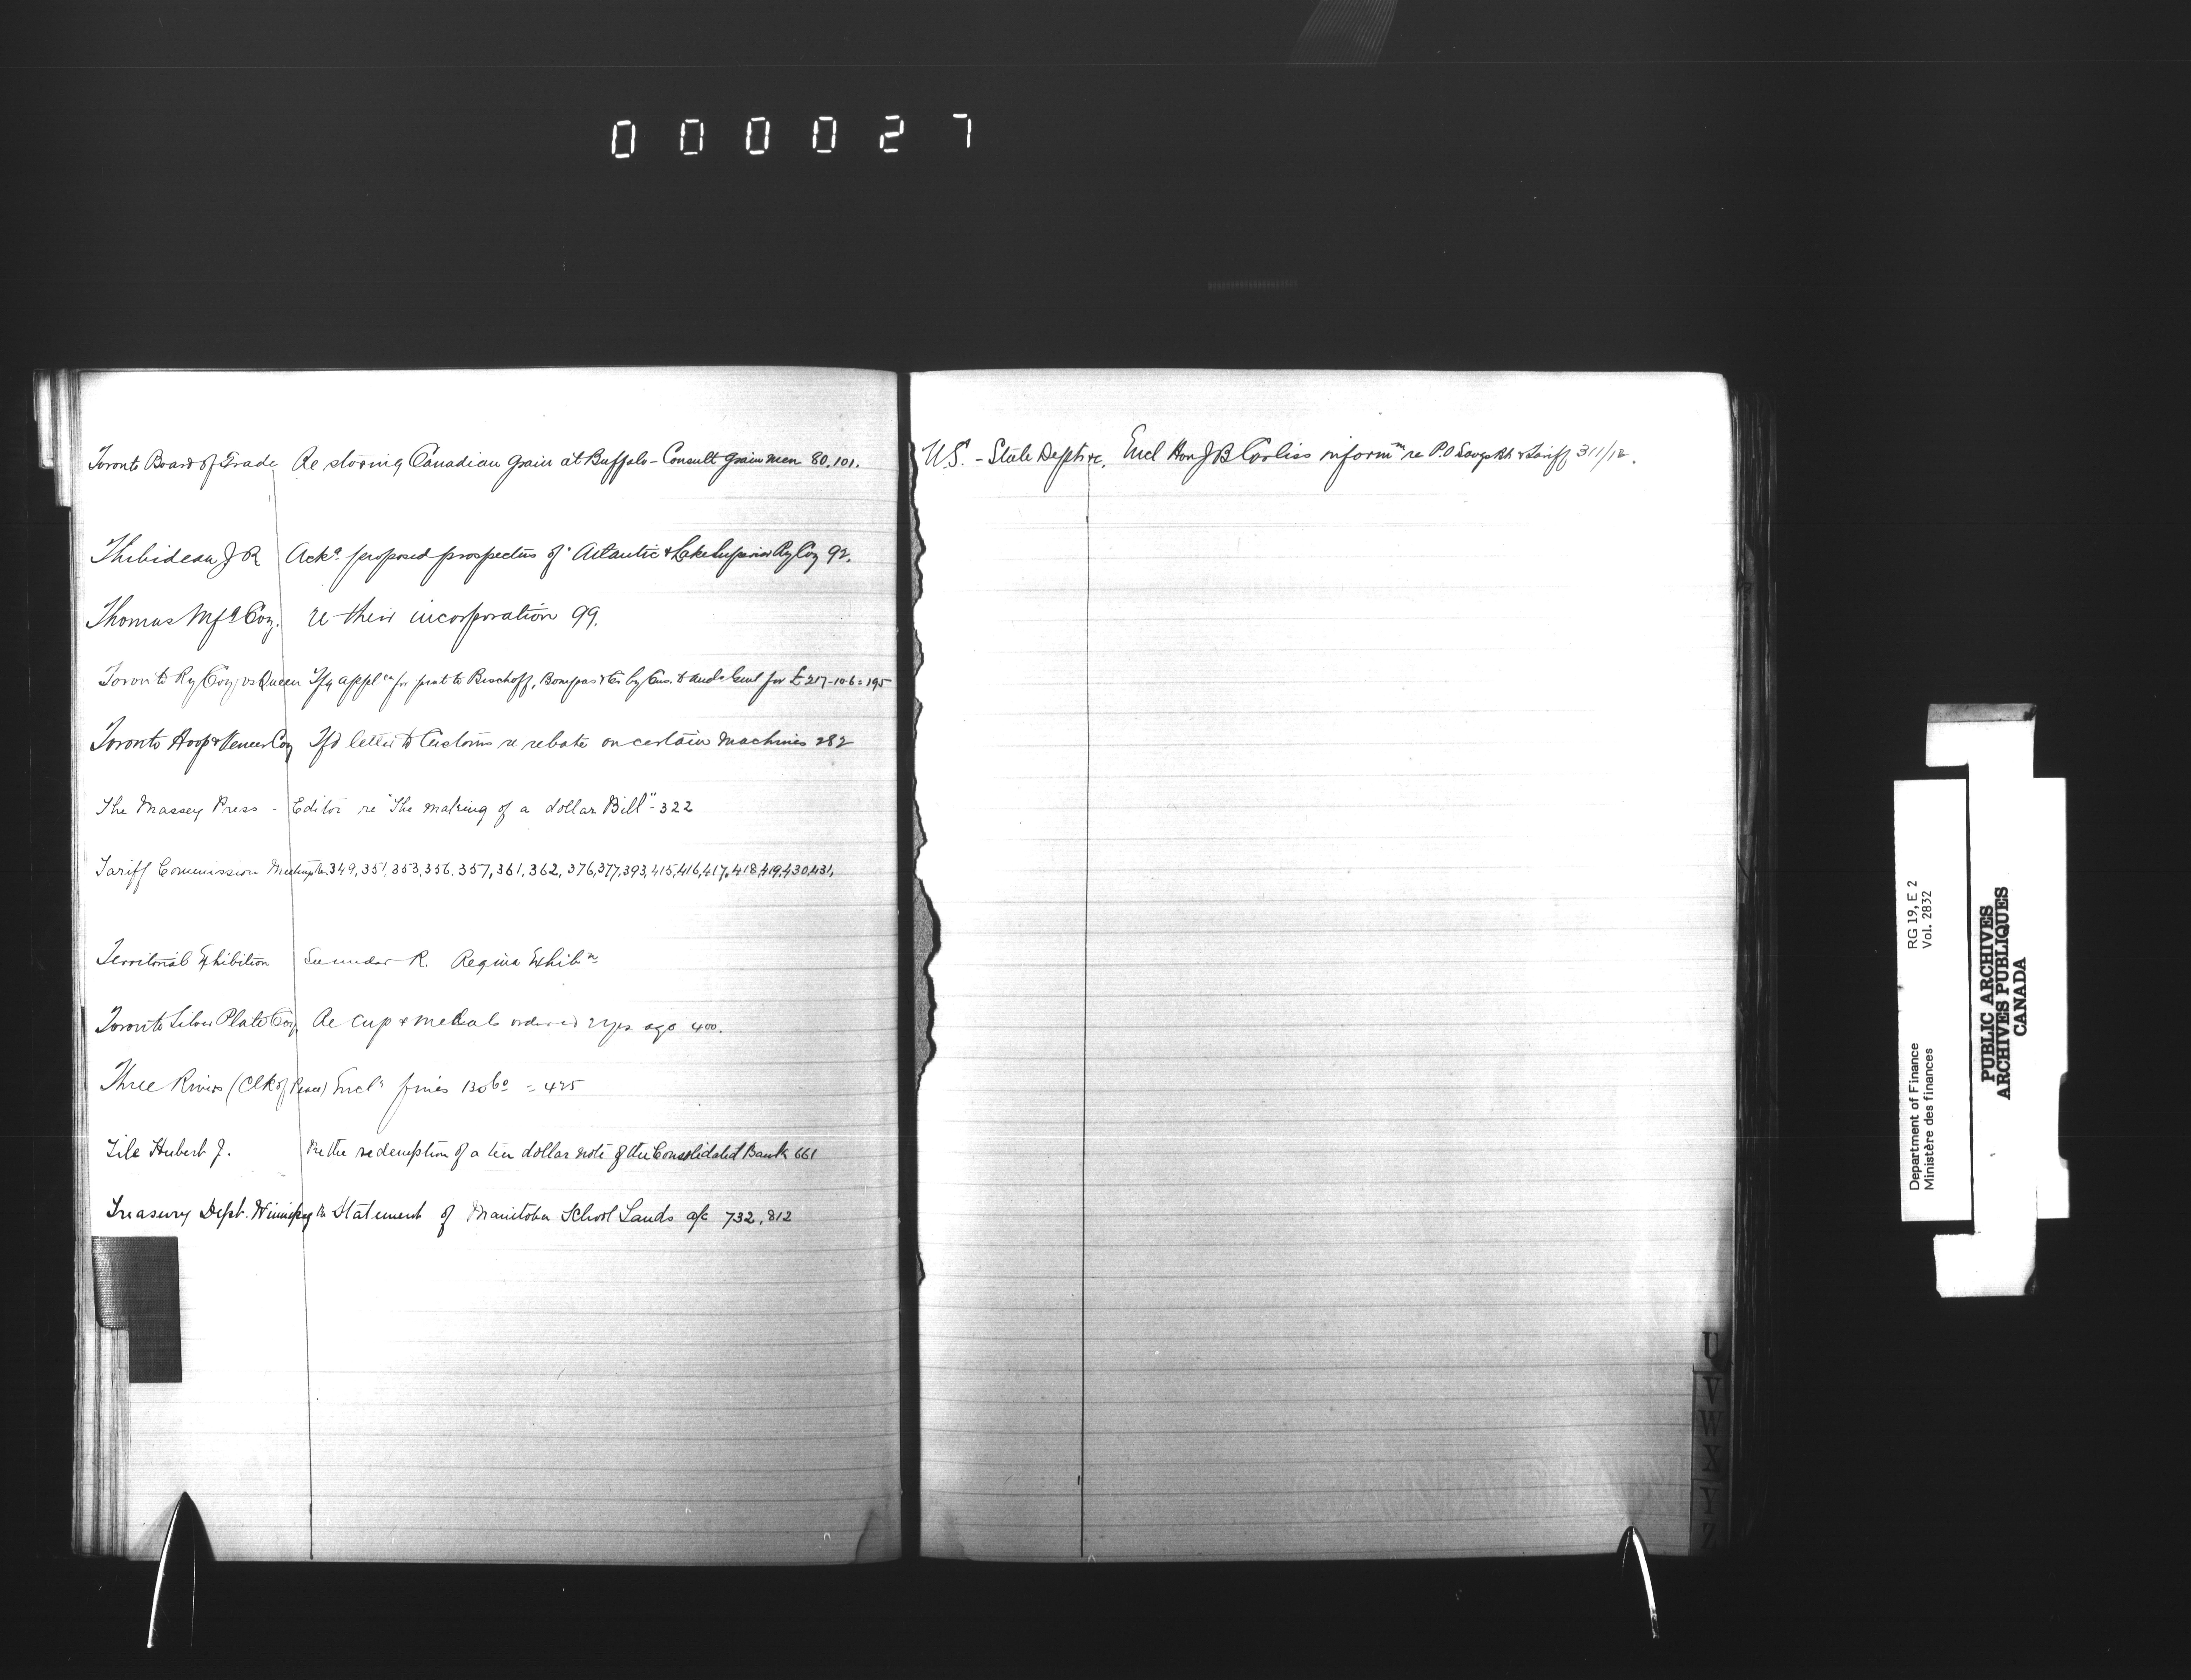 000027
Toronto Board of Trade Re storing Canadian Grain at Buffalo - Consult Grain men 80, 101.
Thibideau J R Ackg proposed prospectus of Atlantic & Lake Superior Ry Coy 92.
Thomas Mfg Coy. re their incorporation 99.
Toronto Ry Coy vs Queen appl'cn for to Bischoff, Bompas & Co by for £217-10-6 = 195
Toronto Hoop & Veneer Coy letter to Customs re rebate on certain Machines 282
The Massey Press - Editor re "The making of a dollar Bill" - 322
Tariff Commission 349, 351, 353, 356, 357, 361, 362, 376, 377, 393, 415, 416, 417, 418, 419, 430, 431,
Territorial Exhibition See under R. Regina Exhib n
Toronto Silver Plate Coy Re cup & medals ordered 2 yrs ago 400.
Three Rivers (Clk of Peace) Encl g fines 130 60 = 425
Tile Hubert J. Re the redemption of a ten dollar note of the Consolidated Bank 661
Treasury Dept. Winnipeg Re Statement of Manitoba School Lands a/c 732, 812
U.S. - State Dept &c. Encl Hon J B Corliss inform n re P.O Savgs Bk & Tariff 311/12.
U
V
W
X
Y
Z
RG 19, E 2
Vol. 2832
Department of Finance
Ministère des finances
PUBLIC ARCHIVES
ARCHIVES PUBLIQUES
CANADA